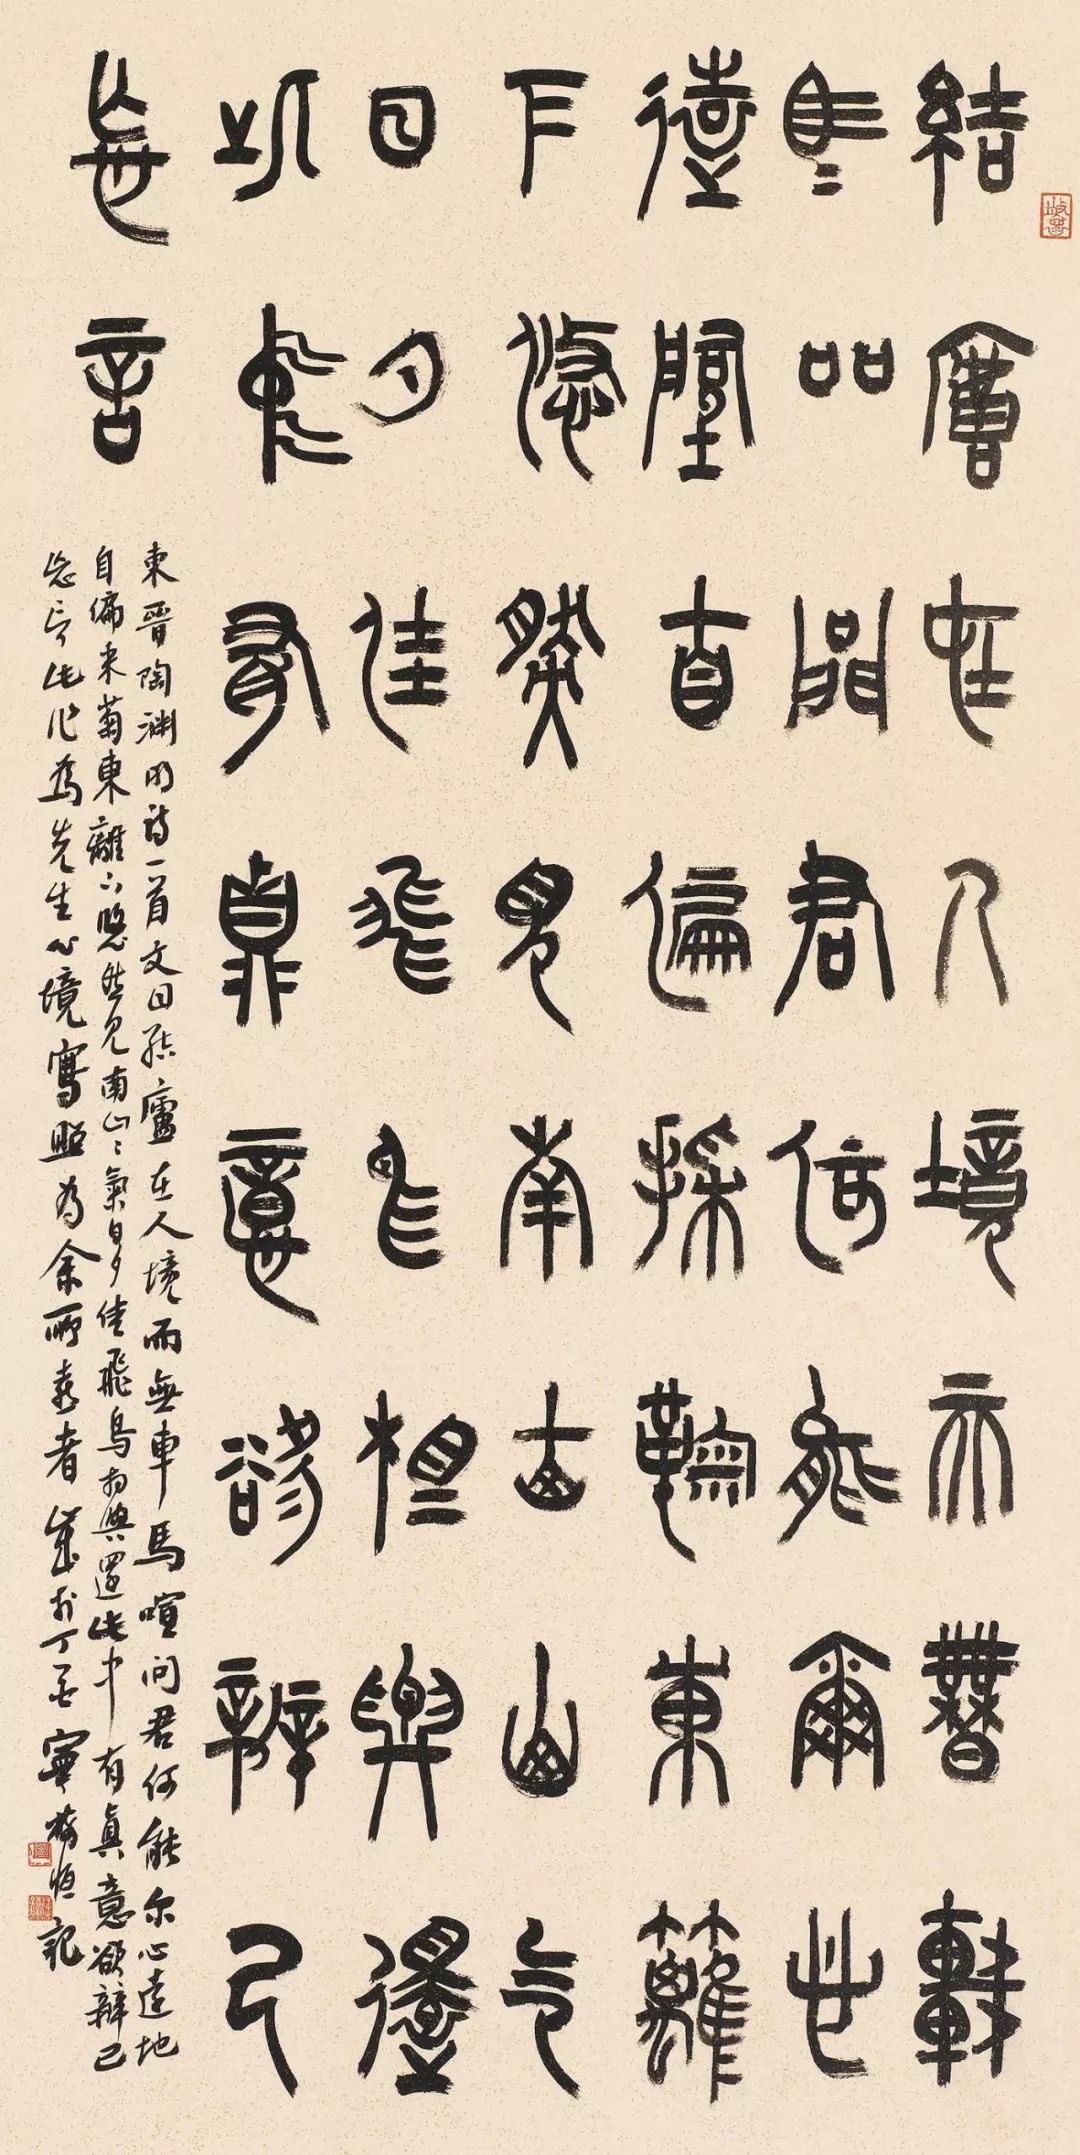 結廬在人境而無車
馬喧問君何能爾心
遠地自偏採菊東籬
下悠然見南山山氣
日夕佳飛鳥相與還
此中有真意欲辨已
忘言
東晉陶淵明詩一首文曰結廬在人境而無車馬喧問君何能尔心遠地
自偏采菊東籬下悠然見南山〻氣日夕佳飛鳥相與還此中有真意欲辯已
忘言此作為先生心境寫照為余所喜者歲於丁亥寧恒記